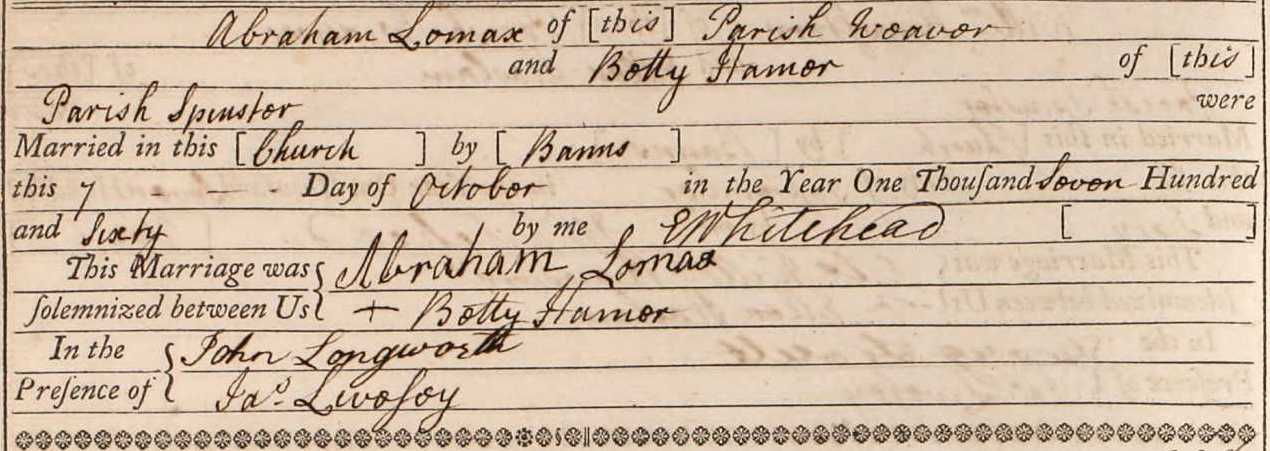 Abraham Lomax of [this] Parish Weaver
and Betty Hamer of [this]
Parish Spinster were
Married in this [Church] by [Banns]
this 7 - - - Day of October in the Year One Thouſand Seven Hundred
and Sixty by me EWhitehead [ ]
This Marriage was { Abraham Lomax
ſolemnized between Us { + Betty Hamer
In the { John Longworth
Preſence of { Jaˢ. Liveſey